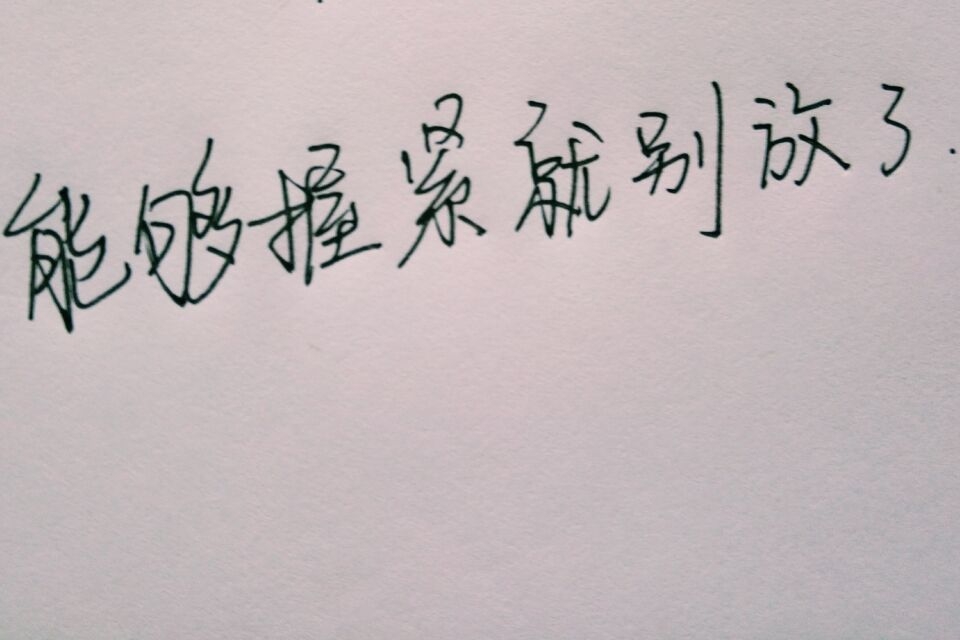 能够握紧就别放了.